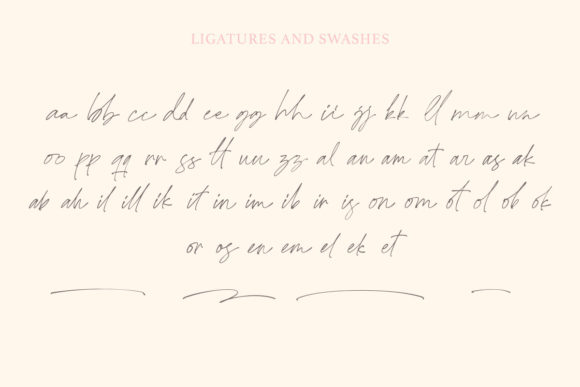 LIGATURES AND SWASHES
aa bb cc dd ee gg hh ii jj kk ll mm nn
oo pp qq rr ss tt uu zz al an am at ar as ak
ab ah il ill ik it in im ib ir is on om ot ol ob ok
or os en em el ek et